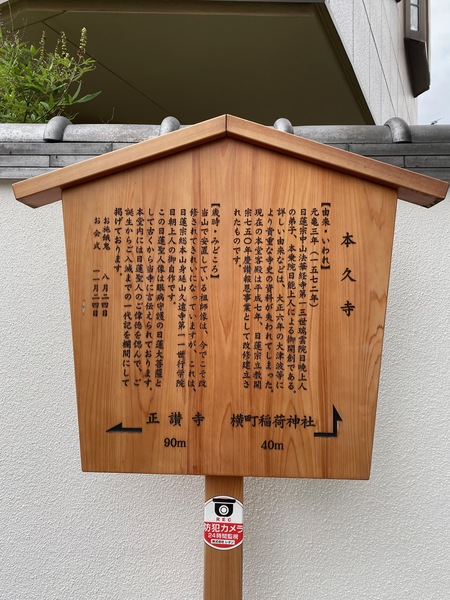 本久寺
【由来・いわれ】
元亀三年(一五七二年)
日蓮宗中山法華経寺第一三世瑞雲院日晩上人
の弟子、本乗院日能上人による御開創である。
詳しい由来などは、大正六年の大津波等に
より貴重な寺史の資料が失われてしまった。
現在の本堂客殿は平成七年、日蓮宗立教開
宗七五〇年慶讃報恩事業として改修建立さ
れたものです。
【歳時・みどころ】
当山で安置している祖師像は、今でこそ改
修されてきれいになっていますが、これは、
日蓮宗総本山身延山久遠寺第一一世行学院
日朝上人の御自作です。
この日蓮聖人像は眼病守護の日蓮大菩薩と
して古くから当寺に言伝えられております。
本堂内には日蓮聖人のご偉徳を偲んで、ご
誕生からご入滅までの一代記を欄間にして
掲げております。
お施餓鬼 八月二四日
お会式 一一月二四日
横町稲荷神社
40m
正讃寺
90m
REC
防犯カメラ
24時間監視